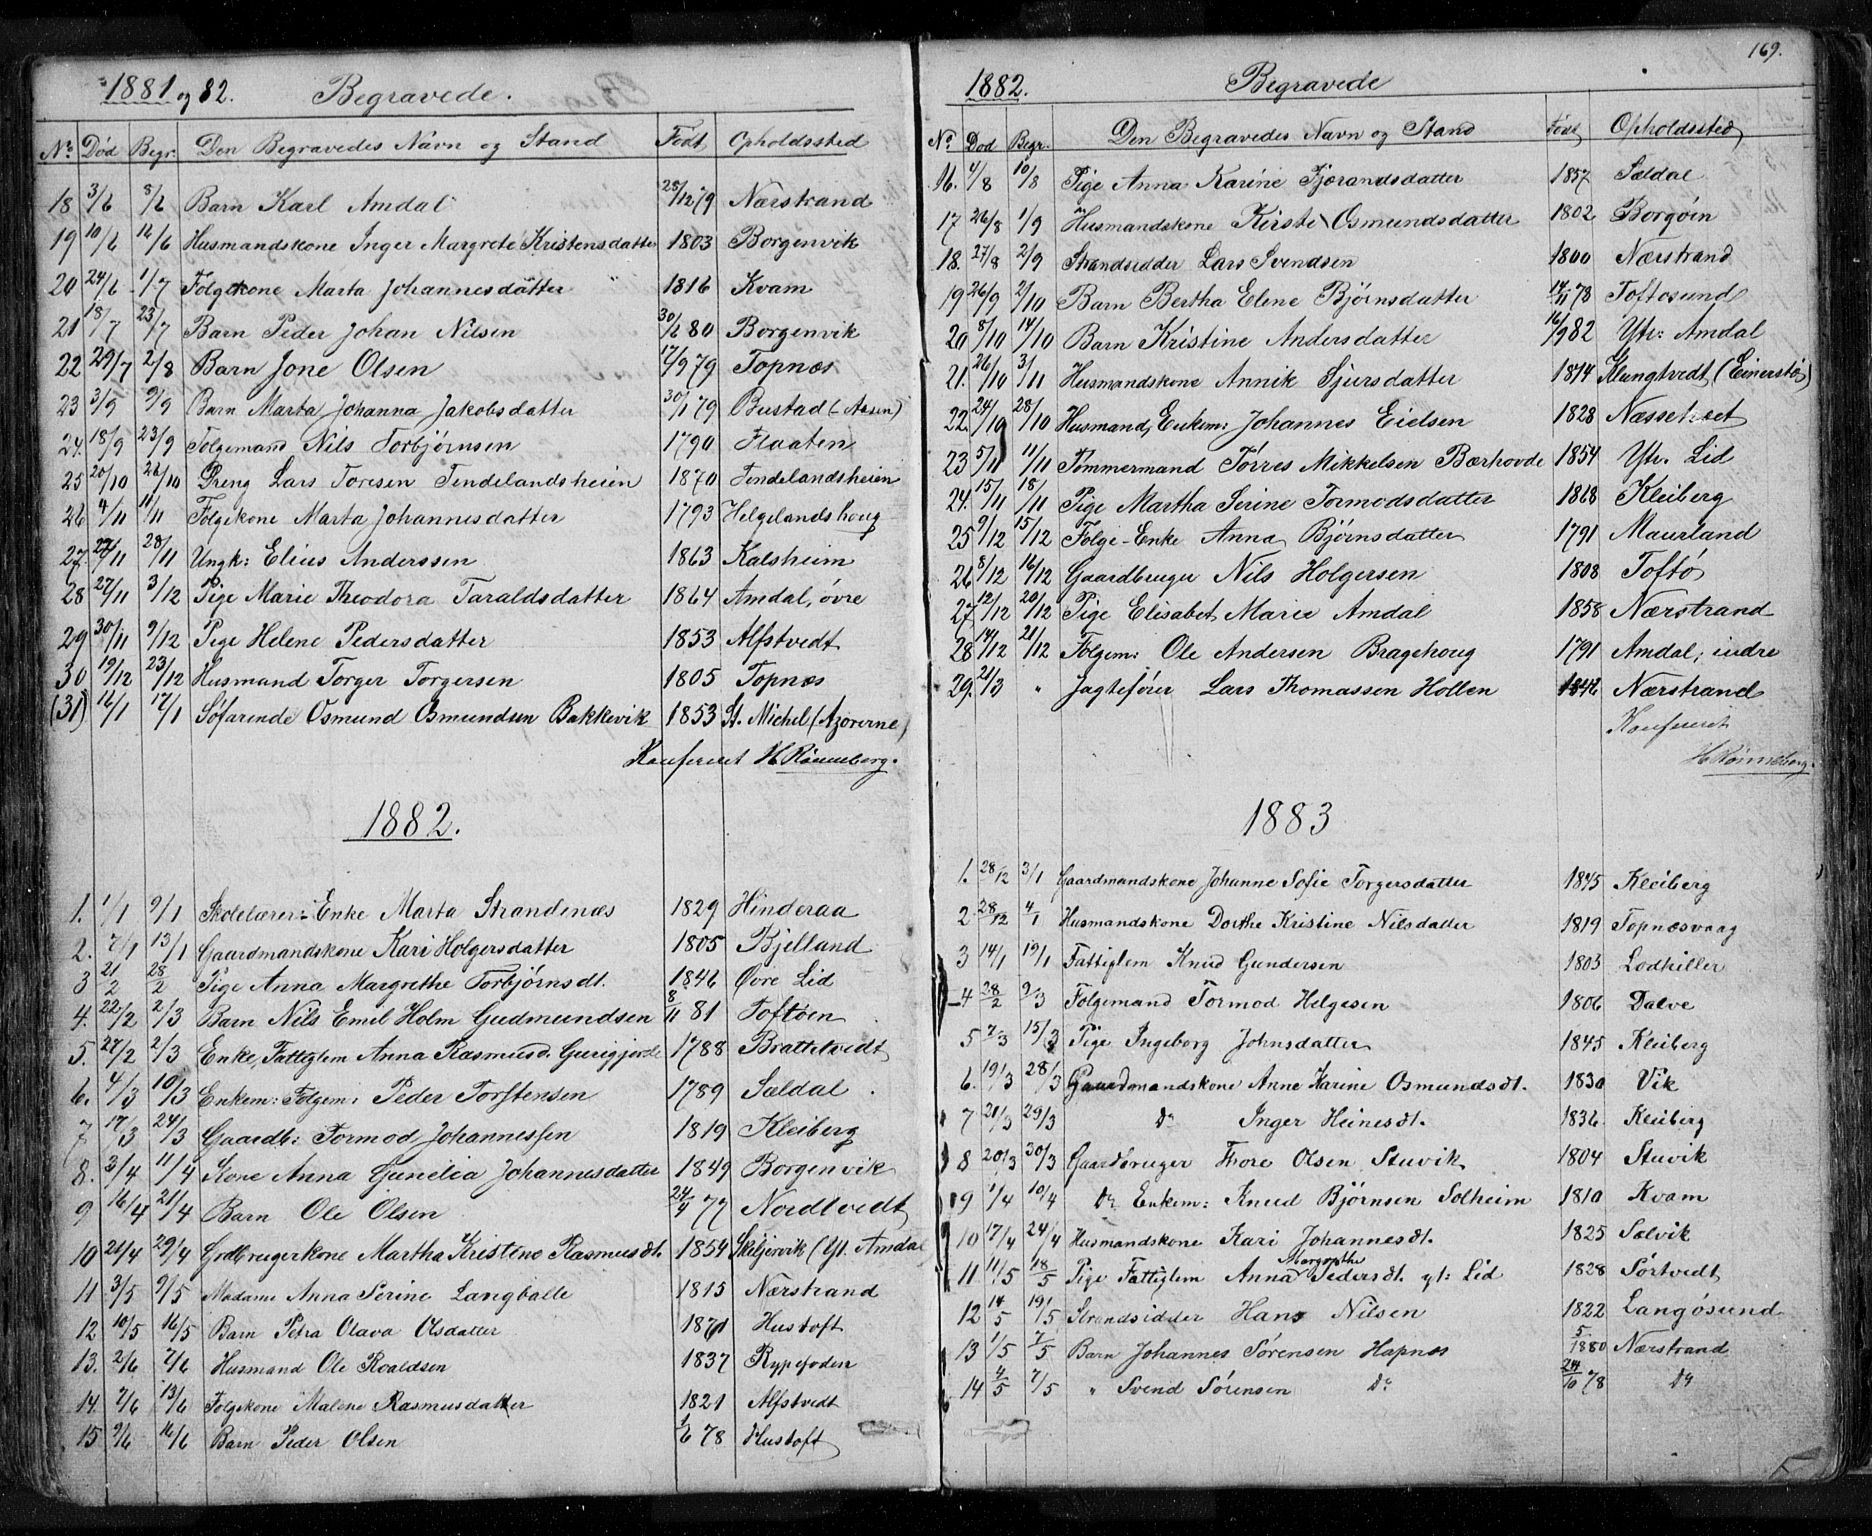 1881 og 82. Begravede.
No Død Begr. Den Begravedes Navn og Stand Født Opholdssted
18 3/6 8/6 Barn Karl Amdal 28/12 79 Nærstrand
19 10/6 16/6 Husmandskone Inger Margrete Kristensdatter 1803 Borgenvik
20 24/6 1/7 Folgekone Marta Johannesdatter 1816 Kvam
21 18/7 23/7 Barn Peder Johan Nilsen 30/6 80 Borgenvik
22 29/7 2/8 Barn Jone Olsen 17/9 79 Topnæs
23 3/9 9/9 Barn Marta Johanna Jakobsdatter 30/1 79 Bustad (Aasen)
24. 18/9 23/9 Folgemand Nils Torbjørnsen 1790 Flaaten
25 20/10 26/10 Dreng Lars Toresen Tindelandsheien 1870 Tindelandsheien
26 4/11 11/11 Følgekone Marta Johannesdatter 1793 Helgelandshoug
27. 22/11 28/11 Ungk: Elius Anderssen 1863 Kalsheim
28 27/11 3/12 Pige Marie Theodora Taraldsdatter 1864 Amdal, øvre
29 30/11 9/12 Pige Helene Pedersdatter 1853 Alfstvedt
30 19/12 23/12 Husmand Torger Torgersen 1805 Topnæs
(31) 16/1 17/1 Søfarende Osmund Osmundsen Bakkevik 1853 St. Michel (Azorerne)
Konfereret H Rønneberg.
1882.
1. 1/1 9/1 Skolelærer: Enke Marta Strandenæs 1829 Hinderaa
2. 7/1 13/1 Gaardmandskone Kari Holgersdatter 1805 Bjelland
3 21/2 28/2 Pige Anna Margrethe Torbjørnsdt. 1846 Øvre Lid
4. 22/2 2/3 Barn Nils Emil Holm Gudmundsen 8/11 81 Toftøen
5. 27/2 2/3 Enke, Fattiglem Anna Rasmusd. Gurigjorde 1788 Brattetvedt
6. 4/3 10/3 Enkem: Folgem: Peder Torstensen 1789 Sældal
7 17/3 24/3 Gaardb: Tormod Johannessen 1819 Kleiberg
8. 3/4 11/4 Kone Anna Gunelia Johannesdatter 1849 Borgenvik
9 16/4 21/4 Barn Ole Olsen 24/4 77 Nordtvedt
10 21/4 29/4 Grdbrugerkone Martha Kristine Rasmusdt. 1854 Skeljervik (Yt. Amdal
11 3/5 9/5 Madame Anna Serine Langballe 1815 Nærstrand
12 10/5 16/5 Barn Petra Olava Olsdatter 1871 Hustoft
13. 2/6 7/6 Husmand Ole Roaldsen 1837 Rypefoden
14. 7/6 13/6 Folgekone Malene Rasmusdatter 1821 Alfstvedt
15 9/6 16/6 Barn Peder Olsen 1/6 78 Hustoft
169.
1882. Begravede
No Død Begr. Den Begravedes Navn og Stand Født Opholdssted
16. 4/8 10/8 Pige Anna Karine Fjørandsdatter 1857 Sældal
17 26/8 1/9 Husmandskone Kirsti Osmundsdatter 1802 Borgøen
18. 27/8 2/9 Strandsidder Lars Svendsen 1800 Nærstrand
19 26/9 2/10 Barn Bertha Elene Bjørnsdatter 14/11 78 Toftøsund
20 8/10 14/10 Barn Kristine Andersdatter 16/9 82 Ytr: Amdal
21. 26/10 3/11 Husmandskone Annik Sjursdatter 1814 Klungtvedt (Einerstø)
22. 24/10 28/10 Husmand, Enkem: Johannes Eielsen 1828 Næsseheet
23 5/11 11/11 Tømmermand Tørres Mikkelsen Bærhovde 1854 Ytr. Lid
24. 15/11 18/11 Pige Martha Serine Tormodsdatter 1868 Kleiberg
25 9/12 15/12 Folge-Enke Anna Bjørnsdatter 1791 Maurland
26 8/12 16/12 Gaardbruger Nils Holgersen 1808 Toftø
27. 12/12 20/12 Pige Elisabet Marie Amdal 1858 Nærstrand
28 14/12 21/12 Folgem: Ole Andersen Bragehoug 1791 Amdal, indre
29. 21/3 " Jagtefører Lars Thomassen Hollen 1842 Nærstrand
Konfereret
H Rønneberg.
1883
1. 28/12 3/1 Gaardmandskone Johanne Sofie Torgersdatter 1845 Kleiberg
2 28/12 4/1 Husmandskone Dorthe Kristine Nilsdatter 1819 Topnæsvaag
3 14/1 19/1 Fattiglem Knud Gundersen 1803 Lodhiller
4 28/2 9/3 Folgemand Tormod Helgesen 1806 Dalve
5 7/3 15/3 Pige Ingeborg Johnsdatter 1845 Kleiberg
6. 19/3 28/3 Gaardmandskone Anne Karine Osmundsdt. 1830 Vik
7 21/3 29/3 Do Inger Heinesdt. 1836 Kleiberg
8 20/3 30/3 Gaardbruger Tore Olsen Stuvik 1804 Stuvik
9 1/4 10/4 Do Enkem: Knud Bjørnsen Solheim 1810 Kvam
10 17/4 24/4 Husmandskone Kari Johannesdt. 1825 Sølvik
11 11/5 18/5 Pige Fattiglem Anna Margrethe Pedersdt. yt: Lid 1828 Sørtvedt
12 14/5 19/5 Strandsidder Hans Nilsen 1822 Langøsund
13 1/5 7/5 Barn Johannes Sørensen Hapnæs 5/1880 Nærstrand
14 4/5 7/5 " Svend Sørensen Do 24/10 78 Do